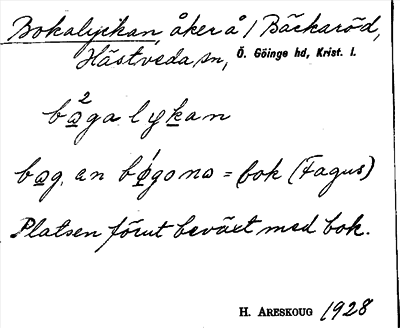 Bokalyckan, åker å 1 Bäckaröd,
Hästveda sn, Ö. Göinge hd, Krist. l.
bo²ga lykan
bog, en bo̍gona = bok (Fagus)
Platsen förut beväxt med bok.
H. ARESKOUG 1928